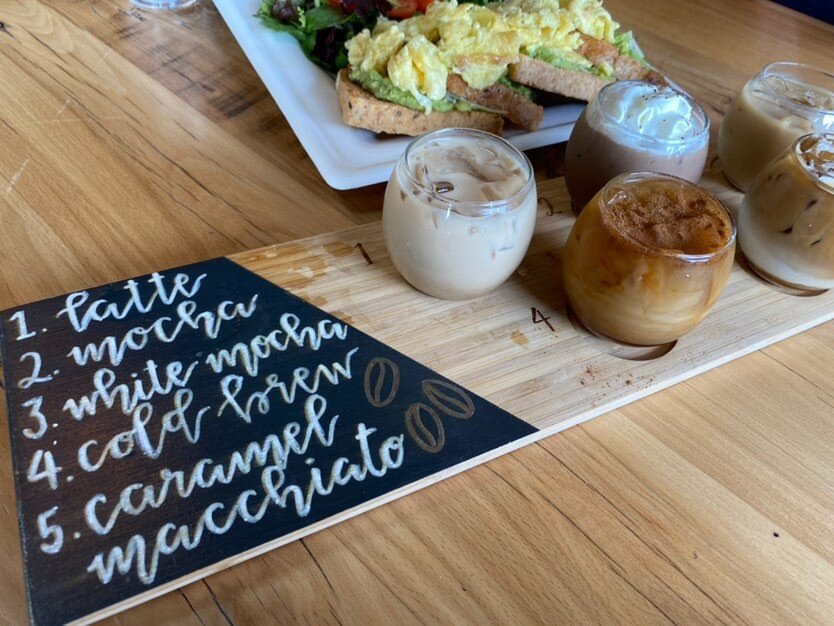 1. latte
2. mocha
3. white mocha
4. cold brew
5. caramel
macchiato
1
2
4